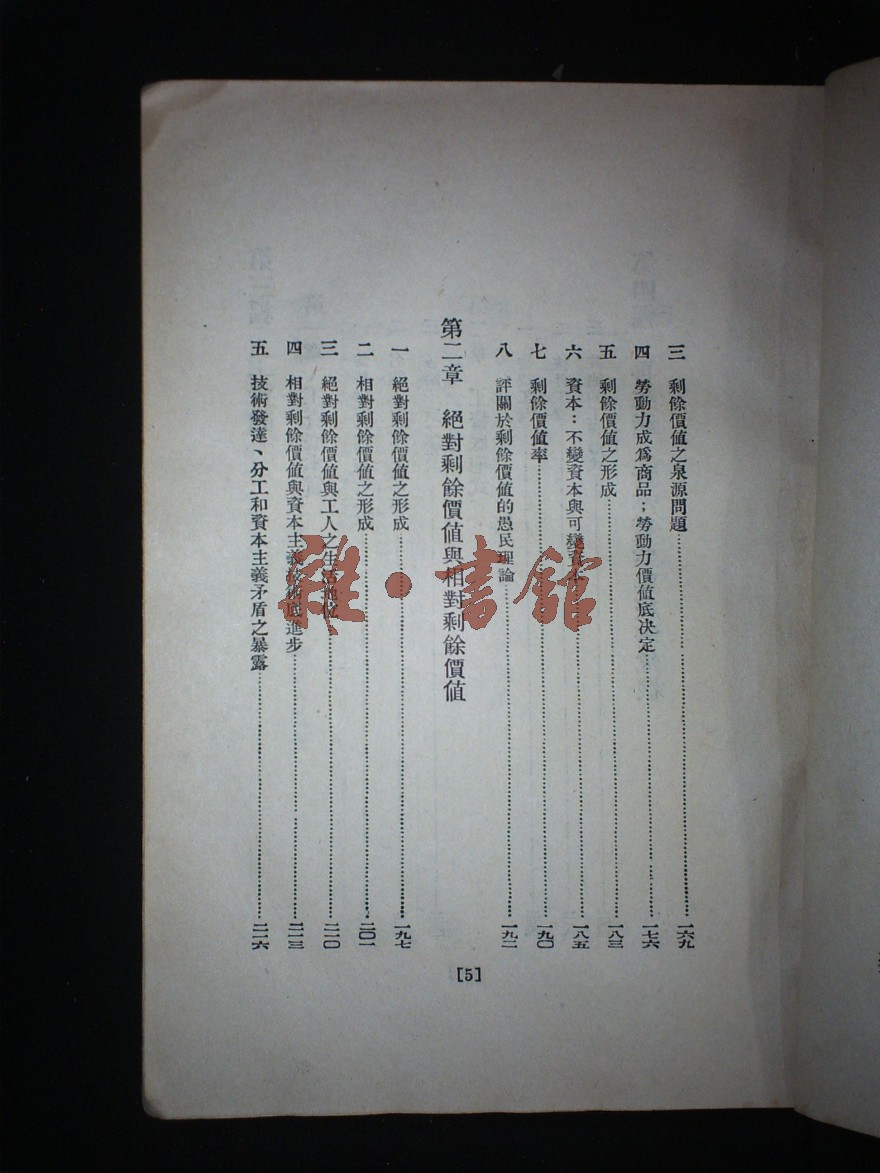 三　剩餘價值之泉源問題……一六九
四　勞動力成爲商品；勞動力價值底决定……一七六
五　剩餘價值之形成……一八三
六　資本：不變資本與可變資本……一八五
七　剩餘價值率……一九〇
八　評關於剩餘價值的愚民理論……一九二
第二章　絕對剩餘價值與相對剩餘價值
一　絕對剩餘價值之形成……一九七
二　相對剩餘價值之形成……二〇一
三　絕對剩餘價值與工人之生活地位……二一〇
四　相對剩餘價值與資本主義技術底進步……二一三
五　技術發達、分工和資本主義矛盾之暴露……二一六
[5]
雜·書館